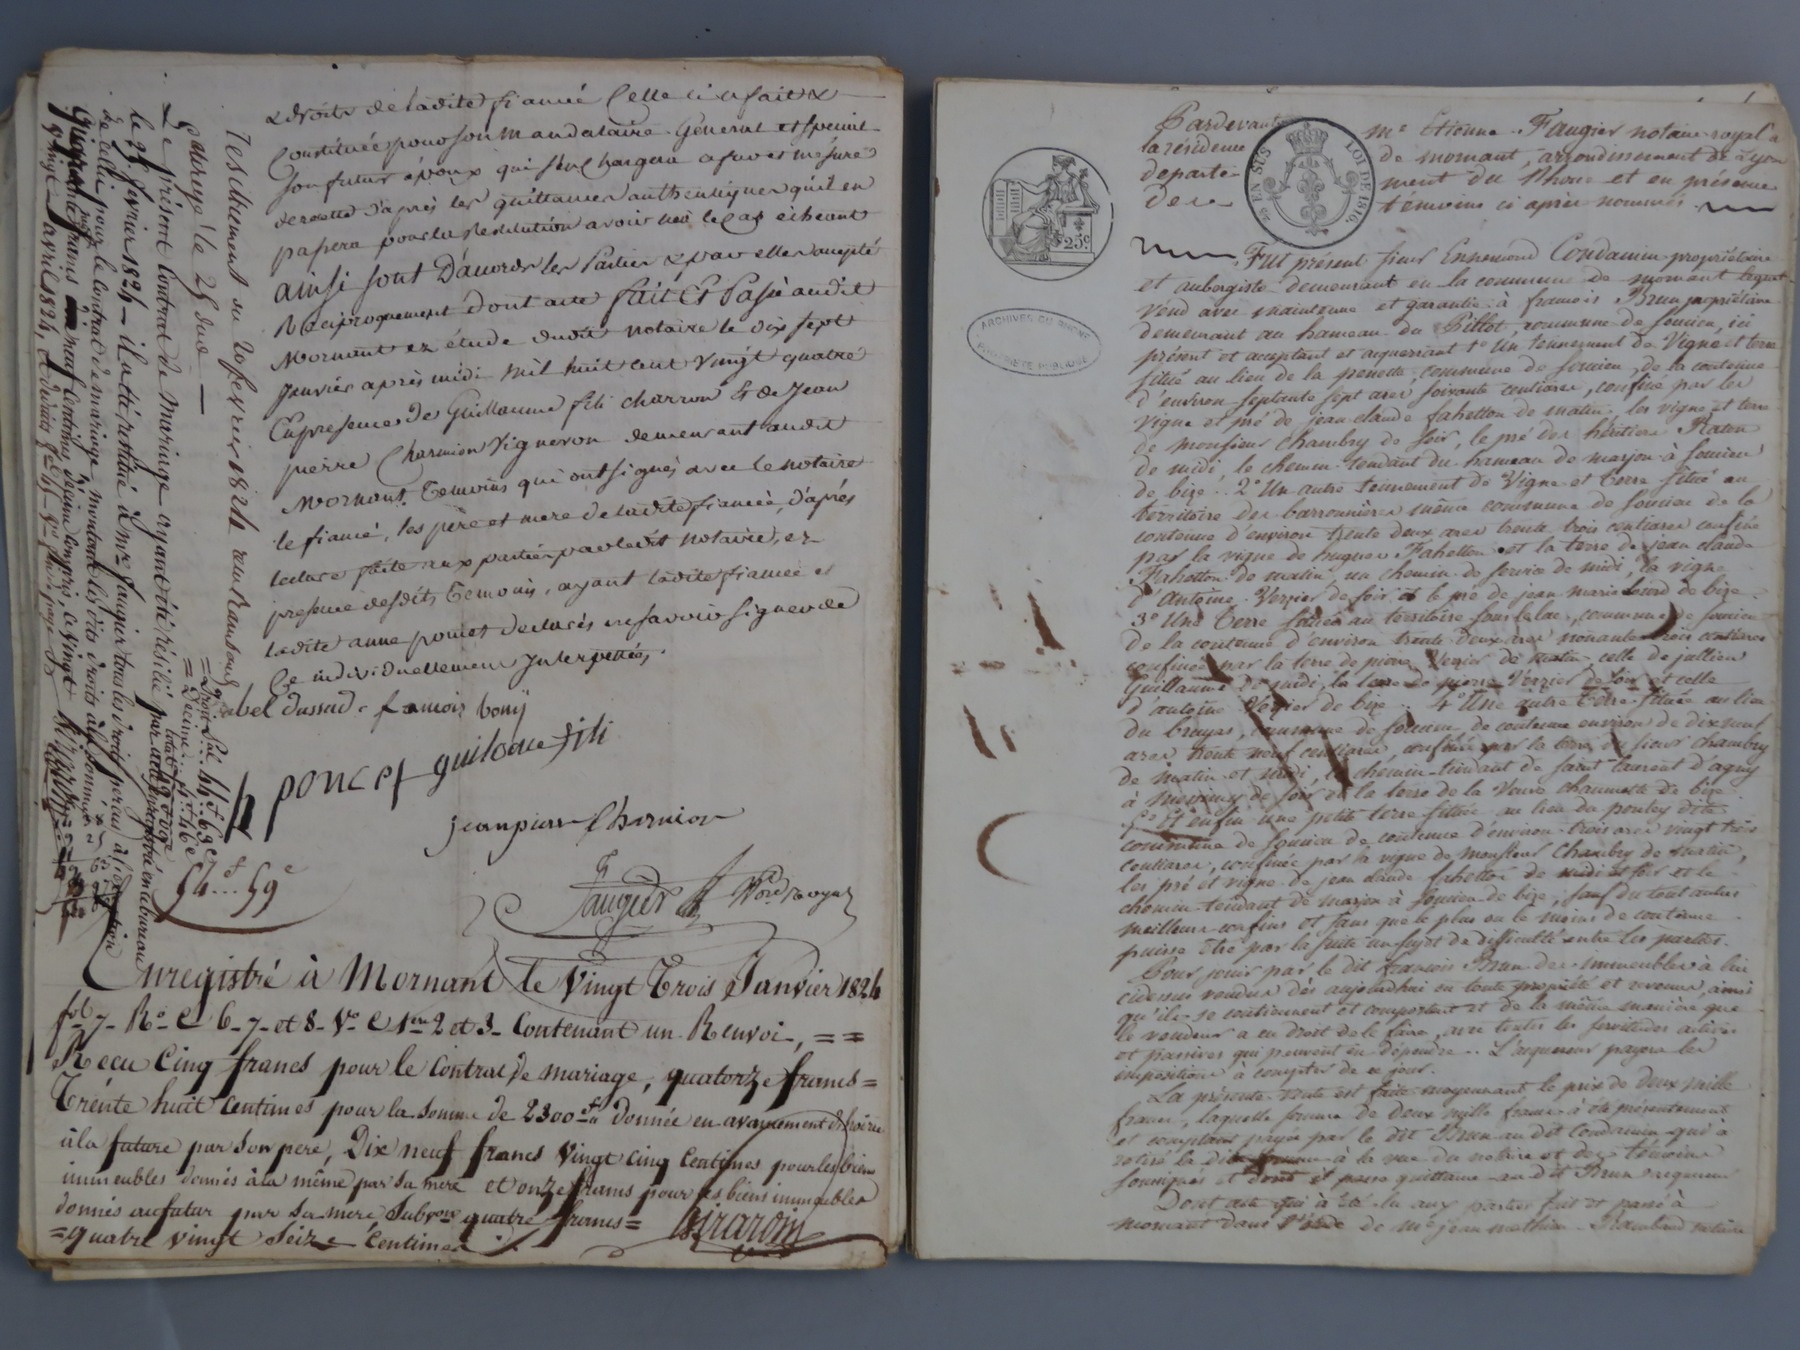 & droits de ladite fiancée Celle ci a fait &
Constitué pour son mandataire Général et spécial
son futur époux qui s'en chargera a fur et mesure
de recette d'après les quittances authentiques qu'il en
passera pour la restitution avoir lieu le cas échéant
ainsi sont D'accord les Parties & par elles accepté
Réciproquement dont acte fait Et Passé audit
Mornant en étude dudit notaire le dix sept
janvier après midi mil huit cent vingt quatre
En présence de Guillaume fili charron & de Jean
pierre Charmion Vigneron demeurant audit
Mornant Temoins qui ont signés avec le notaire
le fiancé, les père et mere de ladite fiancée, d'après
lecture faite aux parties par ledit notaire, en
presence desdits Temoins, ayant ladite fiancée et
ladite anne poncet declarés ne savoir signer de
ce individuellement Interpellées,
abel dussud françois bonij
h poncet guilaume fili
jeanpierre Charmion
faugier Nore royal
54 f 59 c
Enregistré à Mornant le Vingt Trois Janvier 1824
fol 7 Ro C 6-7-et 8- Vo C 1ere 2 et 3- Contenant un Renvoi, ==
Recu Cinq francs pour le Contrat de mariage, quatorze francs =
Trente huit Centimes pour la Somme de 2300 f donnée en avancement d'hoirie
à la future par Son pere, Dix neuf francs Vingt cinq Centimes pour les biens
immeubles donnés à la même par sa mere et onze francs pour les biens immeubles
donnés au futur par Sa mere Subvon quatre francs =
= quatre vingt Seize Centimes Girardin
Le présent Contrat de Mariage ayant été résilié par acte enregistré en ce bureau
le 25 février 1824 il a été restitué à Mre faugier tous les droits percus à l'exception
de celui pour le Contrat de mariage, montant les dits droits à la somme de
vingt avril 1824,
Pardevant Me Etienne Faugier notaire royal à
la résidence de mornant, arrondissement de Lyon
departe- ment du Rhone et en présence
des témoins ci après nommés
5c EN SUS LOI DE 1816.
25c
ARCHIVES DU RHONE
PROPRIETE PUBLIQUE
Fut présent sieur Ennemond Condamin propriétaire
et aubergiste demeurant en la commune de mornant lequel
vend avec maintenue et garantie à françois Brun propriétaire
demeurant au hameau du Billot, commune de soucieu, ici
présent et acceptant et acquerrant 1o Un tennement de Vigne et terre
situé au lieu de la penette, commune de soucieu, de la contenue
d'environ septante sept ares soixante centiares, confiné par les
vigne et pré de jean claude fahetton de matin, les vigne et terre
de monsieur Chambry de soir, le pré des héritiers Raton
de midi le chemin tendant du hameau de marjon à soucieu
de bize.. 2o Un autre tennement de Vigne et terre situé au
territoire des barronnières même commune de soucieu de la
contenue d'environ trente deux ares trente trois centiares confiné
par la vigne de hugues Fahetton et la terre de jean claude
Fahetton de matin, un chemin de service de midi, la vigne
d'Antoine Verzier de soir et le pré de jean marie de bize.
3o Une terre située au territoire sous le lac, commune de soucieu
de la contenue d'environ trente deux ares nonante trois centiares
confinée par la terre de pierre Verzier de matin celle de jullien
Guillaume de midi, la terre de pierre Verzier de soir et celle
d'antoine Verzier de bize.. 4o Une autre terre située au lieu
du brayas, commune de soucieu de contenue environ de dix neuf
ares trente neuf centiares, confinée par la terre du sieur chambry
de matin et midi, le chemin tendant de saint laurent d'agny
à messimy de soir et la terre de la Veuve chaumette de bize.
5o Et enfin une petite terre située au lieu du dite
commune de soucieu de contenue d'environ trois ares vingt trois
centiares, confinée par la vigne de monsieur Chambry de matin,
les pré et vigne de jean claude fahetton de midi et soir et le
chemin tendant de marjon à soucieu de bize, sauf du tout autres
meilleurs confins et sans que le plus ou le moins de contenue
puisse être par la suite un sujet de difficulté entre les parties.
Pour jouir par le dit françois Brun des immeubles à lui
cidessus vendus dès aujourdhui en toute propriété et revenu, ainsi
qu'ils se contiennent et comportent et de la même manière que
le vendeur a eu droit de le faire, avec toutes les servitudes actives
et passives qui peuvent en dépendre.. L'acquereur payera les
impositions à compter de ce jour.
La présente vente est faite moyennant le prix de deux mille
francs, laquelle somme de deux mille francs à été présentement
et comptant payée par le dit Brun au dit Condamin qui à
retiré la dite somme à la vue du notaire et des témoins
soussignés et dont il passe quittance au dit Brun acquereur
Dont acte qui à été lu aux parties fait et passé à
mornant dans l'étude de Me jean mathieu Rambaud notaire